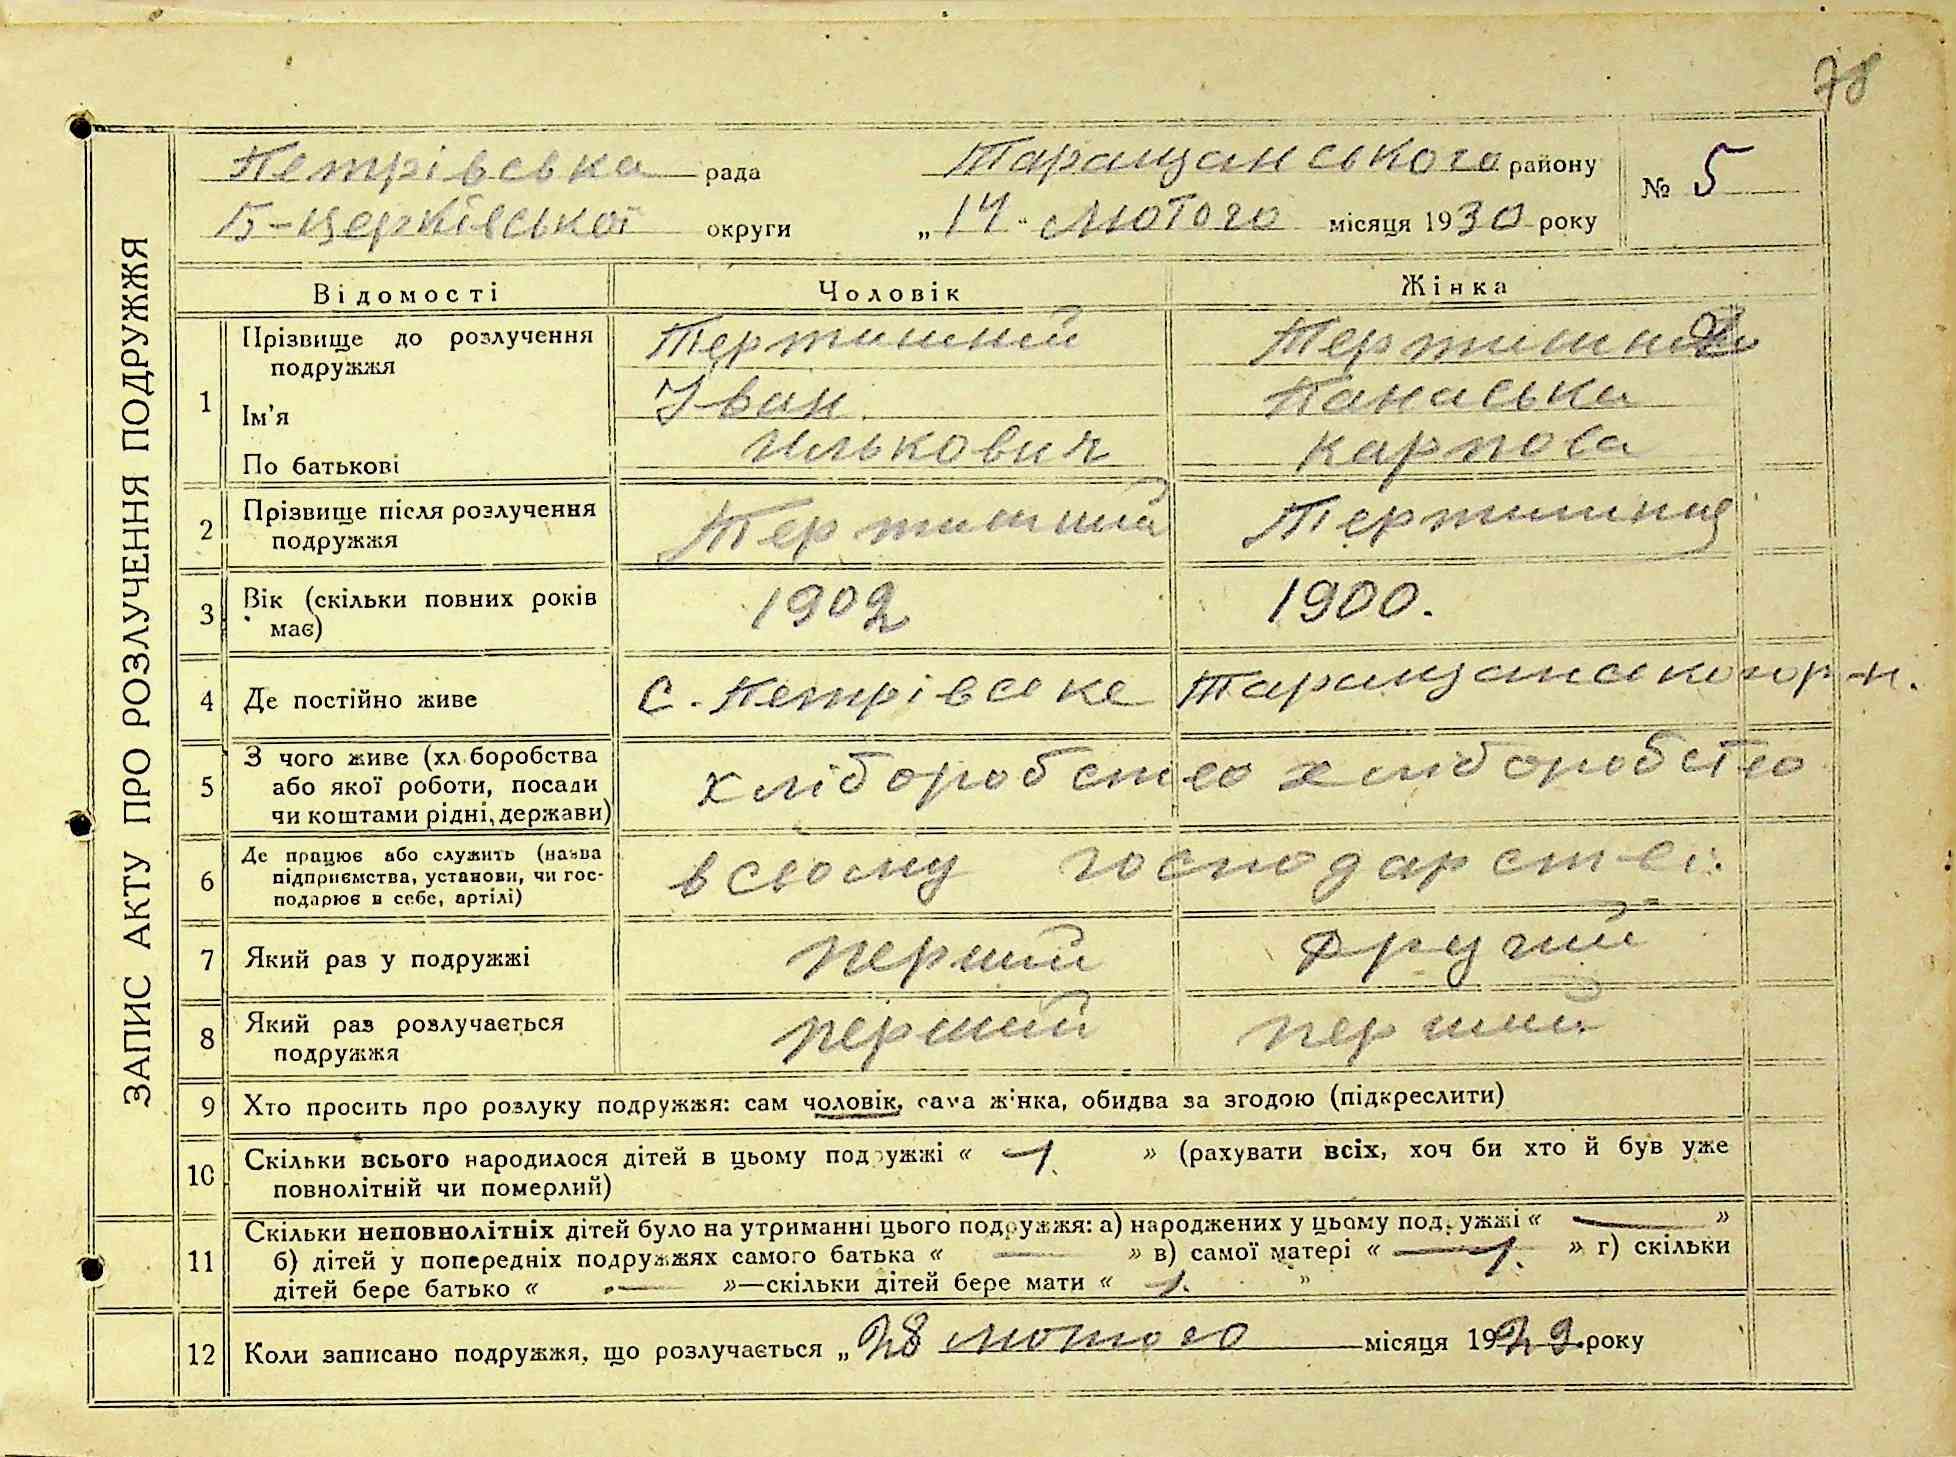 78
ЗАПИС АКТУ ПРО РОЗЛУЧЕННЯ ПОДРУЖЖЯ
Петрівська рада Таращанського району № 5
Б-Церківської округи „14" Лютого місяця 1930 року
Відомості Чоловік Жінка
1 Прізвище до розлучення подружжя Тертишний Тертишна
Ім'я Іван Панаська
По батькові Илькович Карпова
2 Прізвище після розлучення подружжя Тертишний Тертишна
3 Вік (скільки повних років має) 1902 1900.
4 Де постійно живе С. Петрівське Таращанського р-н.
5 З чого живе (хліборобства або якої роботи, посади чи коштами рідні, держави) хліборобство хліборобство
6 Де працює або служить (назва підприємства, установи, чи господарює в себе, артілі) всьому господарстві.
7 Який раз у подружжі перший другий
8 Який раз розлучається подружжя перший перший
9 Хто просить про розлуку подружжя: сам чоловік, сама жінка, обидва за згодою (підкреслити)
10 Скільки всього народилося дітей в цьому подружжі « –1. » (рахувати всіх, хоч би хто й був уже
повнолітній чи померлий)
11 Скільки неповнолітніх дітей було на утриманні цього подружжя: а) народжених у цьому подружжі « — »
б) дітей у попередніх подружжях самого батька « — » в) самої матері « —1. » г) скільки
дітей бере батько « — »—скільки дітей бере мати « –1. »
12 Коли записано подружжя, що розлучається „28 лютого місяця 1929 року